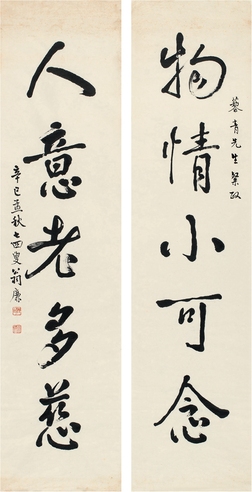 藜青先生粲政
物情小可念
人意老多慈
辛巳孟秋七四叟翁廉